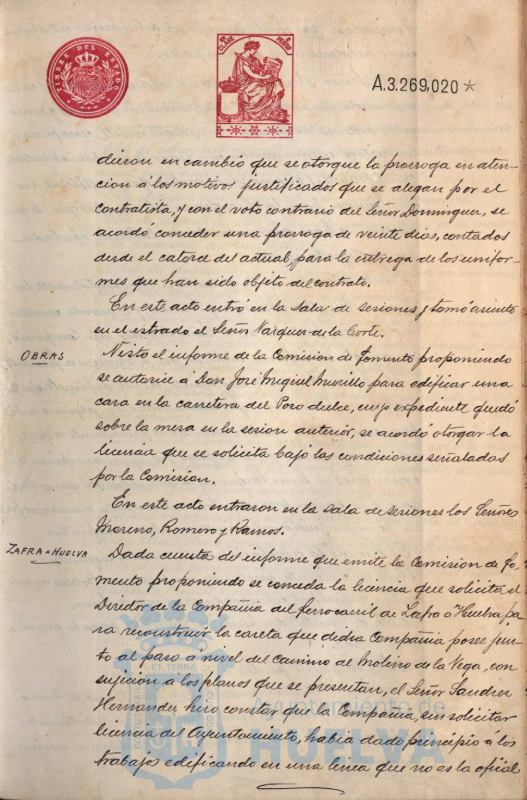 TIMBRE DEL ESTADO
A.3.269,020 *
dieron en cambio que se otorgue la prorroga en aten-
cion á los motivos justificados que se alegan por el
contratista, y con el voto contrario del Señor Dominguez, se
acordó conceder una prorroga de veinte dias, contados
desde el catorce del actual, para la entrega de los unifor-
mes que han sido objeto del contrato.
En este acto entró en la sala de sesiones y tomó asiento
en el estrado el Señor Vazquez de la Corte.
OBRAS
Visto el informe de la Comision de Fomento proponiendo
se autorice á Don José Miguel Murillo para edificar una
casa en la carretera del Pozo dulce, cuyo expediente quedó
sobre la mesa en la sesion anterior, se acordó otorgar la
licencia que se solicita bajo las condiciones señaladas
por la Comision.
En este acto entraron en la sala de sesiones los Señores
Moreno, Romero y Ramos.
ZAFRA A HUELVA
Dada cuenta del informe que emite la Comision de Fo-
mento proponiendo se conceda la licencia que solicita el
Director de la Compañia del ferrocarril de Zafra á Huelva pa-
ra reconstruir la caseta que dicha Compañia posee jun-
to al paso á nivel del camino de Molino de la Vega, con
sujecion a los planos que se presentan, el Señor Sanchez
Hernandez hizo constar que la Compañia, sin solicitar
licencia del Ayuntamiento, habia dado principio á los
trabajos edificando en una linea que no es la oficial
Ayuntamiento de
HUELVA